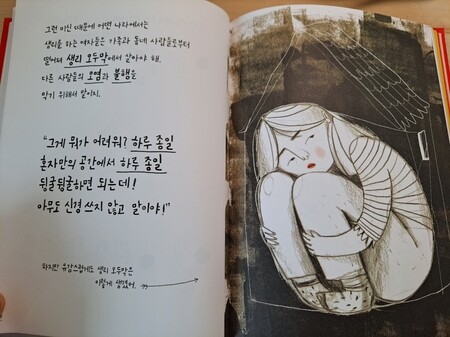 그런 미신 때문에 어떤 나라에서는
생리를 하는 여자들은 가족과 동네 사람들로부터
떨어져 생리 오두막에서 살아야 해.
다른 사람들의 오염과 불행을
막기 위해서 말이지.
"그게 뭐가 어려워? 하루 종일
혼자만의 공간에서 하루 종일
뒹굴뒹굴하면 되는데!
아무도 신경 쓰지 않고 말이야!"
하지만 유감스럽게도 생리 오두막은
이렇게 생겼어.